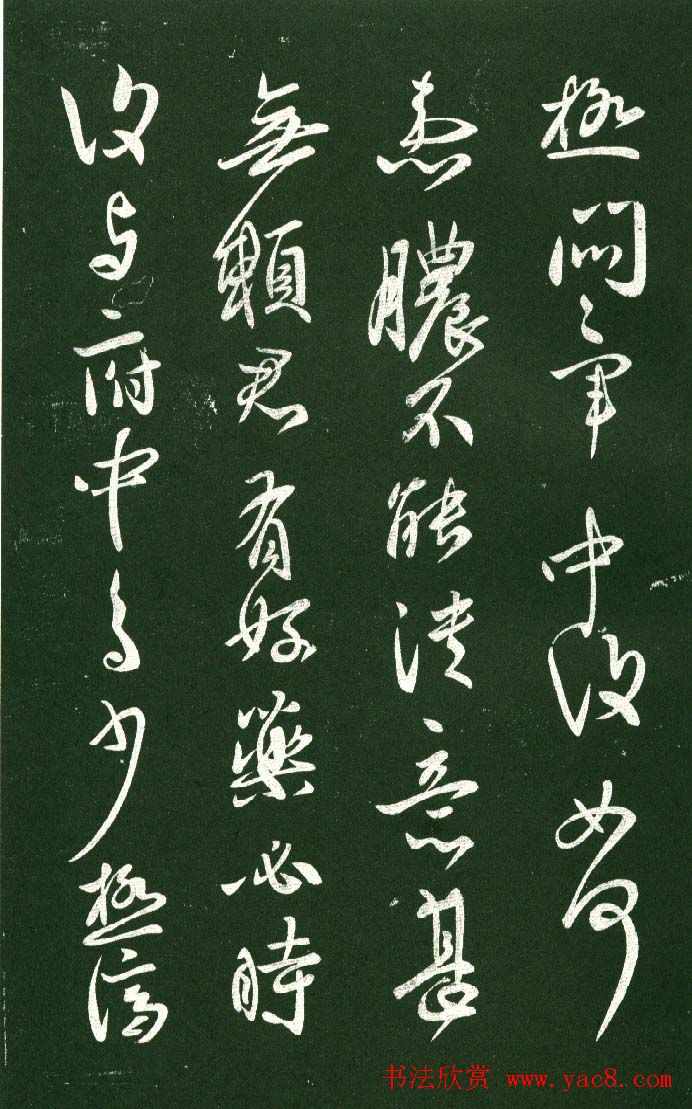 極悶〻軍中復如何
膿不能潰意甚
無賴君有好藥必時
復与府中多少極濟
书法欣赏 www.yac8.com